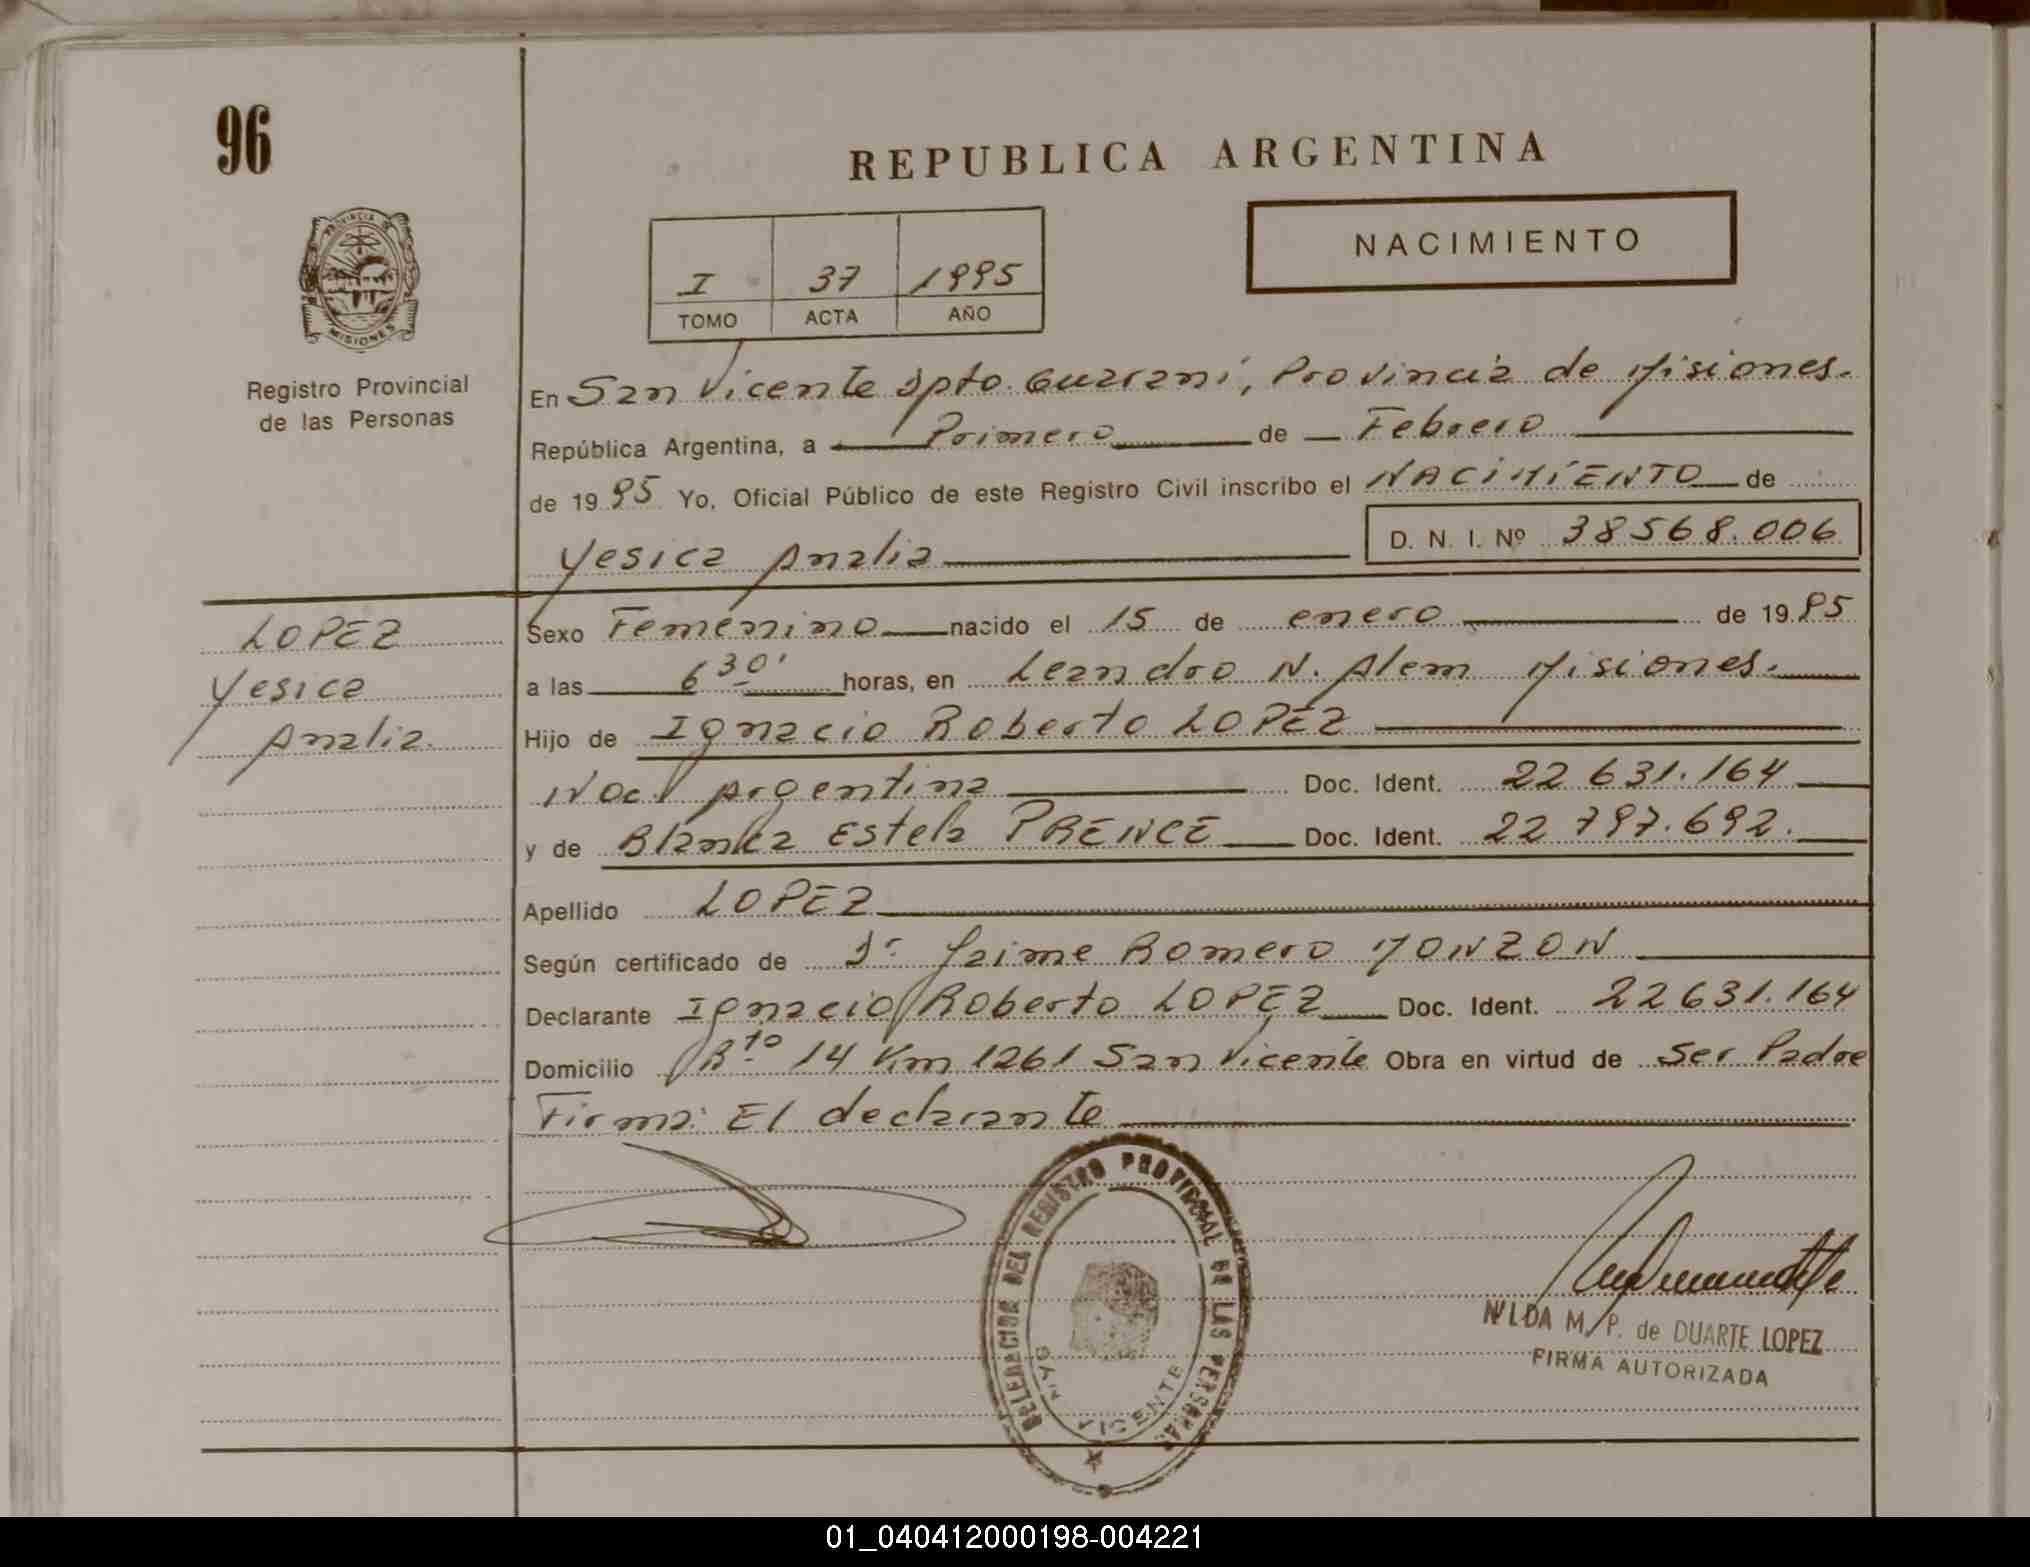 96
REPUBLICA ARGENTINA
NACIMIENTO
I 37 1995
TOMO ACTA AÑO
PROVINCIA DE
MISIONES
Registro Provincial
de las Personas
En San Vicente Dpto. Guarani, Provincia de Misiones.
República Argentina, a Primero de Febrero
de 1995 Yo, Oficial Público de este Registro Civil inscribo el NACIMIENTO de
Yesica Analia D. N. I. Nº 38568.006
LOPEZ
Yesica
Analia.
Sexo Femenino nacido el 15 de enero de 1995
a las 6 30' horas, en Leandro N. Alem Misiones.
Hijo de Ignacio Roberto LOPEZ
Nac. Argentina Doc. Ident. 22 631.164
y de Blanca Estela PRENCE Doc. Ident. 22 797.692.
Apellido LOPEZ
Según certificado de Dr Jaime Romero MONZON
Declarante Ignacio Roberto LOPEZ Doc. Ident. 22631.164
Domicilio Bto 14 Km 1261 San Vicente Obra en virtud de Ser Padre
Firma: El declarante
DELEGACION DEL REGISTRO PROVINCIAL DE LAS PERSONAS
SAN VICENTE
NILDA M. P. de DUARTE LOPEZ
FIRMA AUTORIZADA
01_040412000198-004221